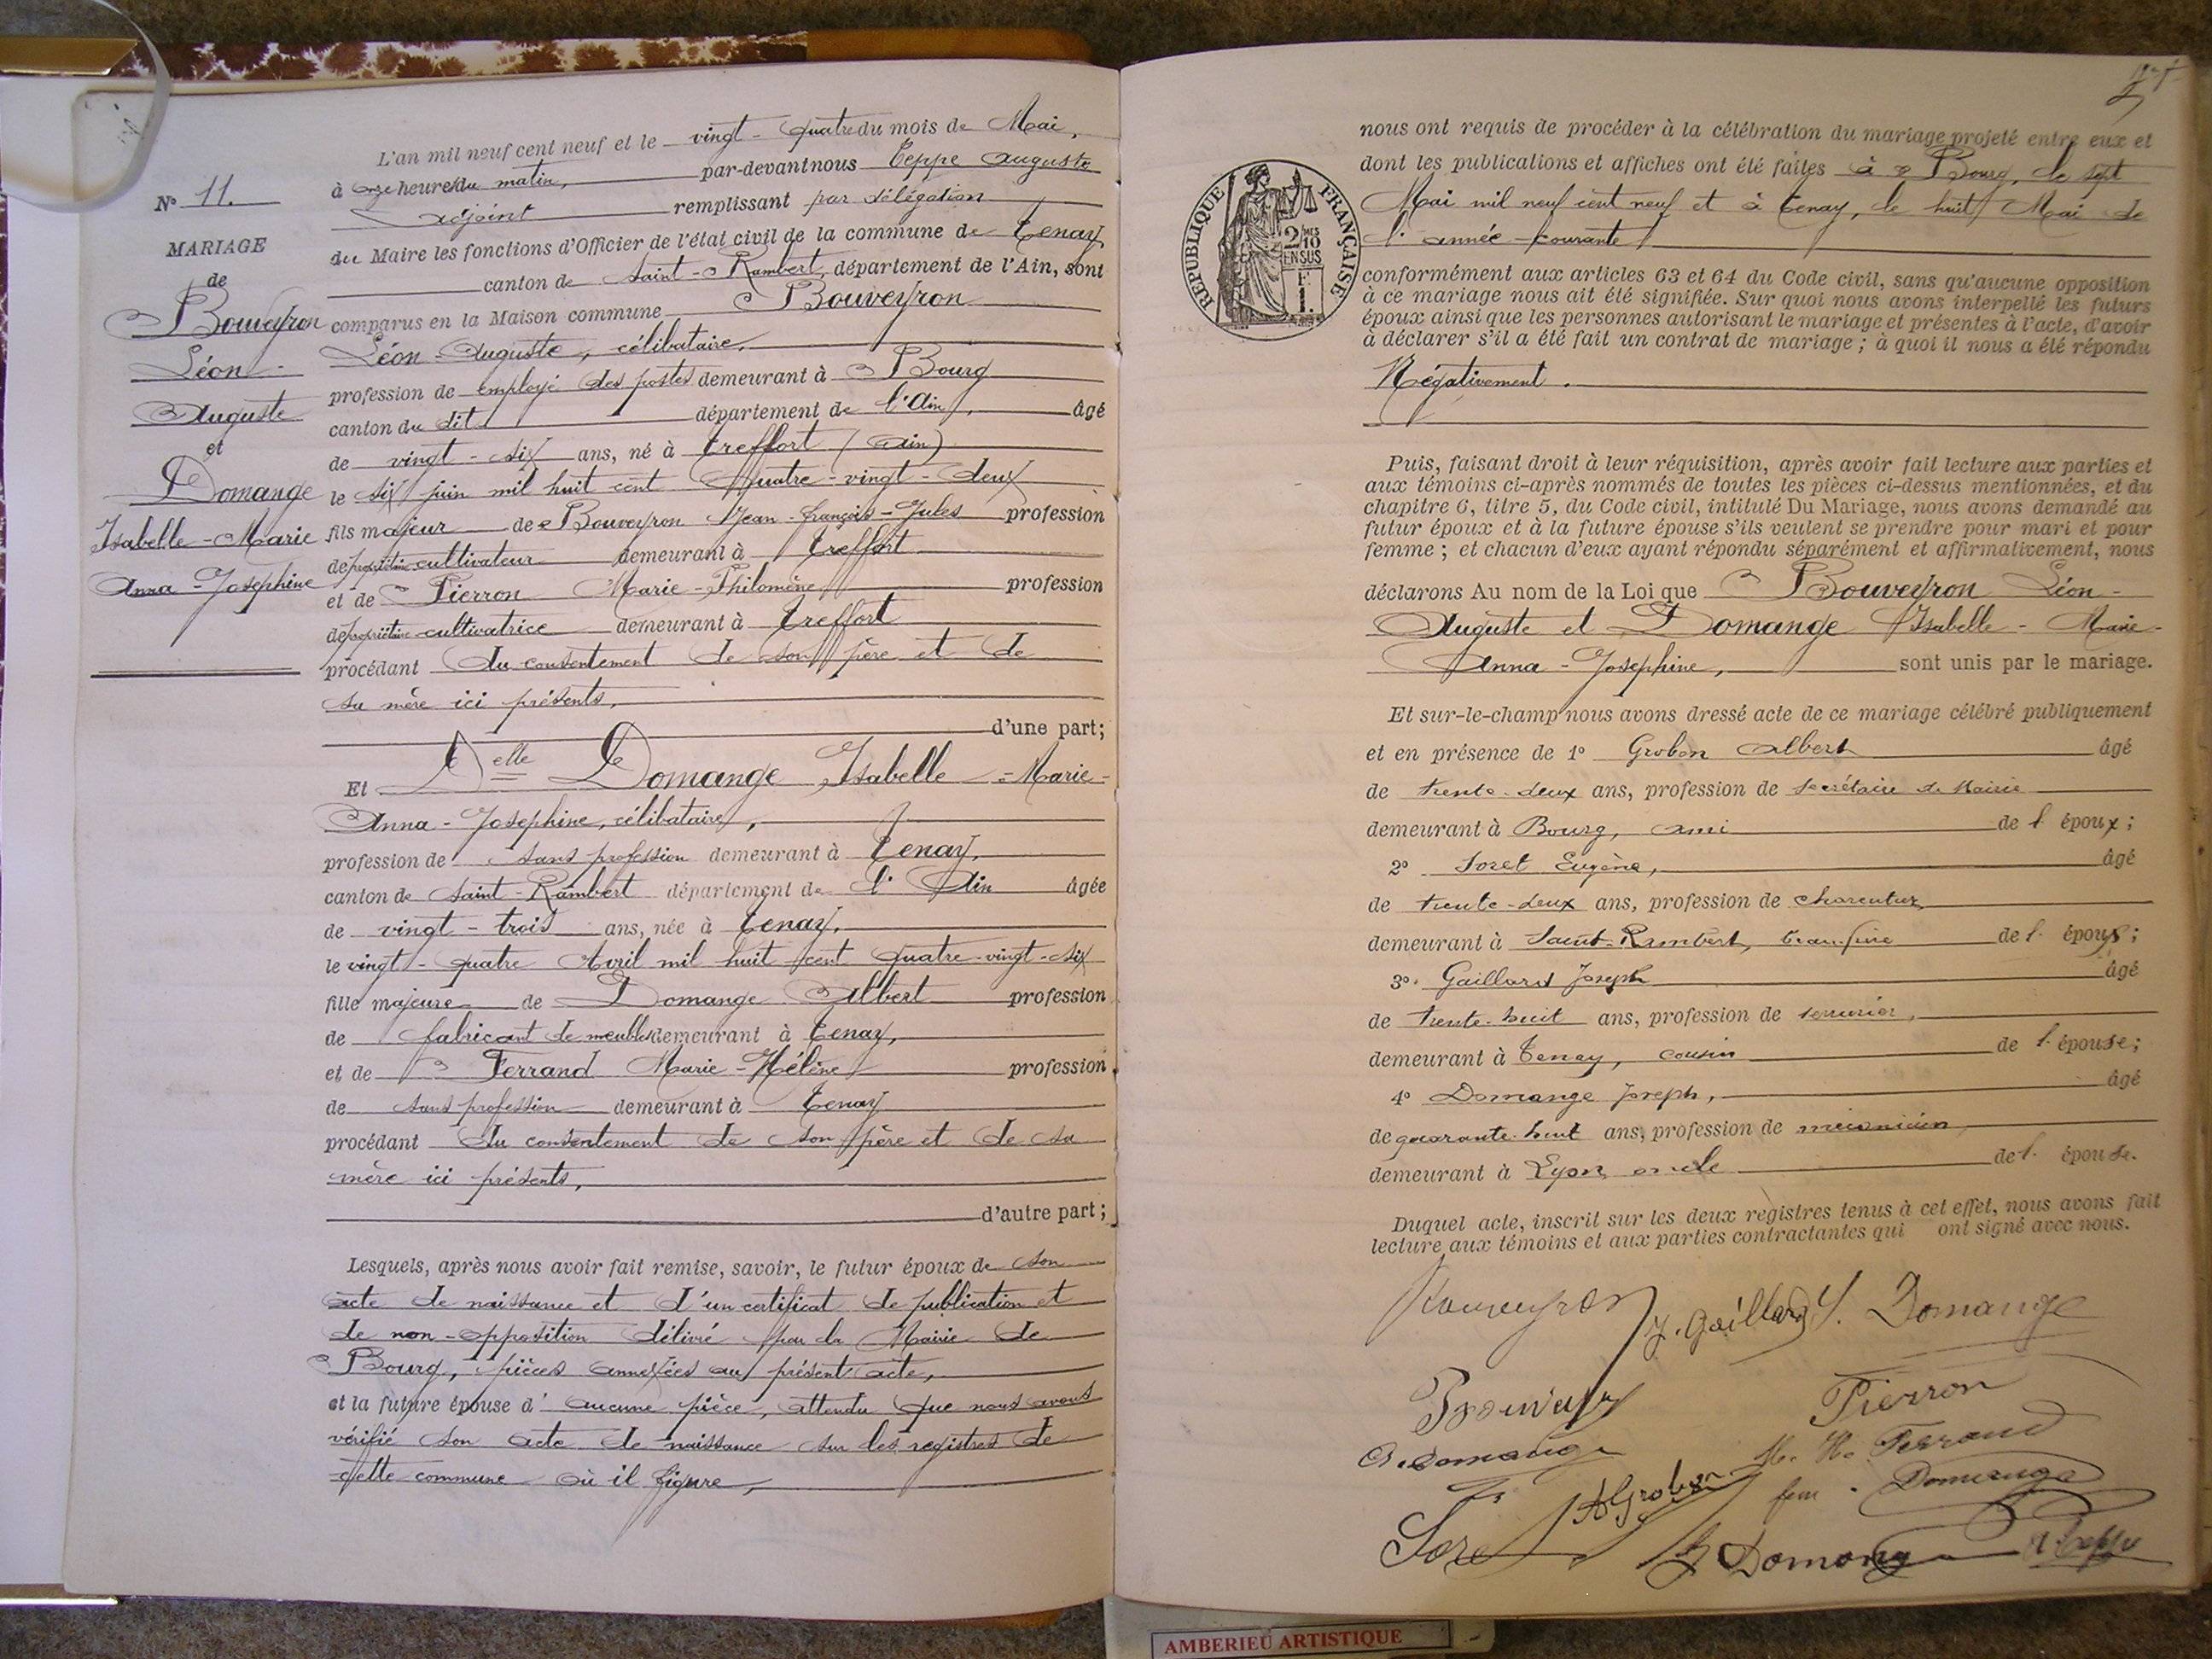 N° 11.
MARIAGE
de
Bouveyron
Léon-
Auguste
et
Domange
Isabelle-Marie
Anna-Josephine
L'an mil neuf cent neuf et le vingt-quatre du mois de Mai,
à onze heures du matin, par-devant nous Teppe Auguste
adjoint remplissant par délégation
du Maire les fonctions d'Officier de l'état civil de la commune de Tenay,
canton de Saint-Rambert, département de l'Ain, sont
comparus en la Maison commune Bouveyron
Léon-Auguste, célibataire,
profession de employé des postes demeurant à Bourg
canton du dit département de l'Ain, âgé
de vingt-six ans, né à Treffort (Ain)
le six juin mil huit cent quatre-vingt-deux
fils majeur de Bouveyron Jean-François-Jules profession
de propriétaire cultivateur demeurant à Treffort
et de Pierron Marie-Philomène profession
de propriétaire-cultivatrice demeurant à Treffort
procédant du consentement de son père et de
sa mère ici présents,
d'une part;
Et Delle Domange Isabelle-Marie-
Anna-Josephine, célibataire,
profession de sans profession demeurant à Tenay,
canton de Saint-Rambert département de l'Ain âgée
de vingt-trois ans, née à Tenay,
le vingt-quatre Avril mil huit cent quatre-vingt-six
fille majeure de Domange Albert profession
de fabricant de meubles demeurant à Tenay,
et de Ferrand Marie-Hélène profession
de sans profession demeurant à Tenay
procédant du consentement de son père et de sa
mère ici présents,
d'autre part;
Lesquels, après nous avoir fait remise, savoir, le futur époux de son
acte de naissance et d'un certificat de publication et
de non-opposition délivré par la Mairie de
Bourg, pièces annexées au présent acte,
et la future épouse d' aucune pièce, attendu que nous avons
vérifié son acte de naissance sur les registres de
cette commune où il figure,
RÉPUBLIQUE FRANÇAISE
2/10MES
EN SUS
1F.
nous ont requis de procéder à la célébration du mariage projeté entre eux et
dont les publications et affiches ont été faites à Bourg, le sept
Mai mil neuf cent neuf et à Tenay, le huit Mai de
l'année courante
conformément aux articles 63 et 64 du Code civil, sans qu'aucune opposition
à ce mariage nous ait été signifiée. Sur quoi nous avons interpellé les futurs
époux ainsi que les personnes autorisant le mariage et présentes à l'acte, d'avoir
à déclarer s'il a été fait un contrat de mariage; à quoi il nous a été répondu
Négativement.
Puis, faisant droit à leur réquisition, après avoir fait lecture aux parties et
aux témoins ci-après nommés de toutes les pièces ci-dessus mentionnées, et du
chapitre 6, titre 5, du Code civil, intitulé Du Mariage, nous avons demandé au
futur époux et à la future épouse s'ils veulent se prendre pour mari et pour
femme; et chacun d'eux ayant répondu séparément et affirmativement, nous
déclarons Au nom de la Loi que Bouveyron Léon-
Auguste et Domange Isabelle-Marie-
Anna-Josephine, sont unis par le mariage.
Et sur-le-champ nous avons dressé acte de ce mariage célébré publiquement
et en présence de 1° Grobon Albert âgé
de trente-deux ans, profession de secrétaire de Mairie
demeurant à Bourg, ami de l'époux;
2° Soret Eugène, âgé
de trente-deux ans, profession de
demeurant à Saint-Rambert, beau-frère de l'époux;
3° Gaillard Joseph âgé
de trente-huit ans, profession de serrurier,
demeurant à Tenay, cousin de l'épouse;
4° Domange Joseph, âgé
de quarante-huit ans, profession de mécanicien
demeurant à Lyon oncle de l'épouse.
Duquel acte, inscrit sur les deux registres tenus à cet effet, nous avons fait
lecture aux témoins et aux parties contractantes qui ont signé avec nous.
Bouveyron J. Gaillard I. Domange
Pierron
A. Domange M. H. Ferrand
fem. Domange
Soret AGrobon
J Domange A. Teppe
AMBERIEU ARTISTIQUE